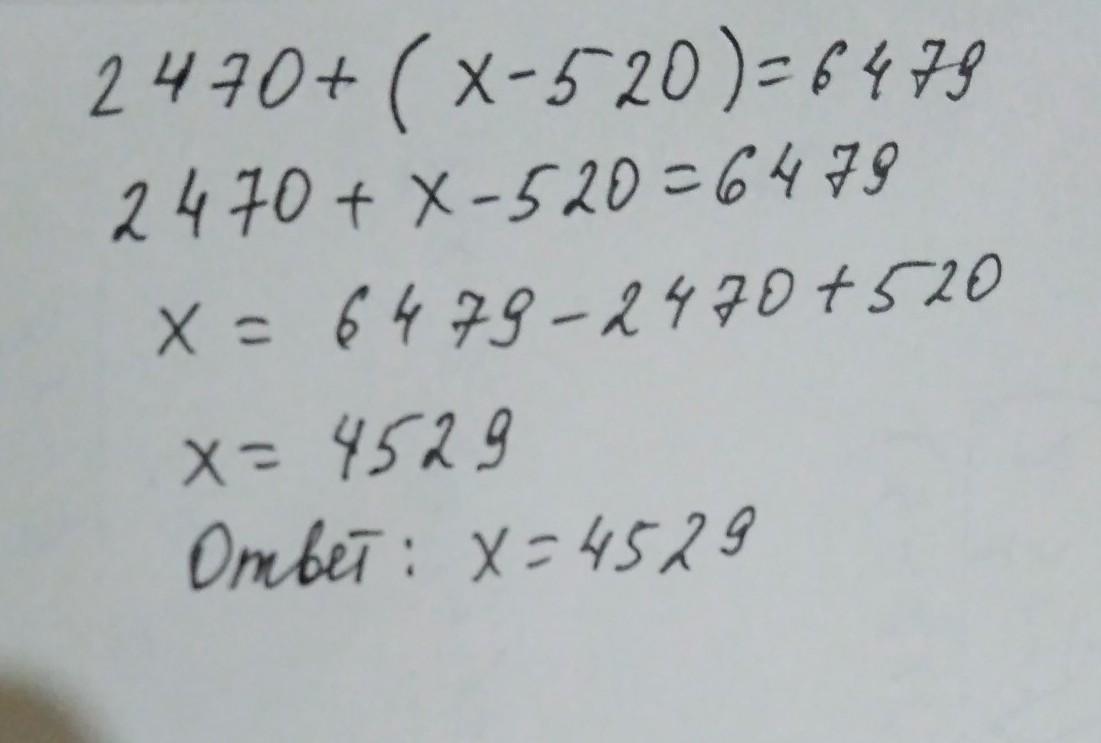 2470+(x-520)=6479
2470+x-520=6479
x = 6479-2470+520
x = 4529
Ответ: x=4529